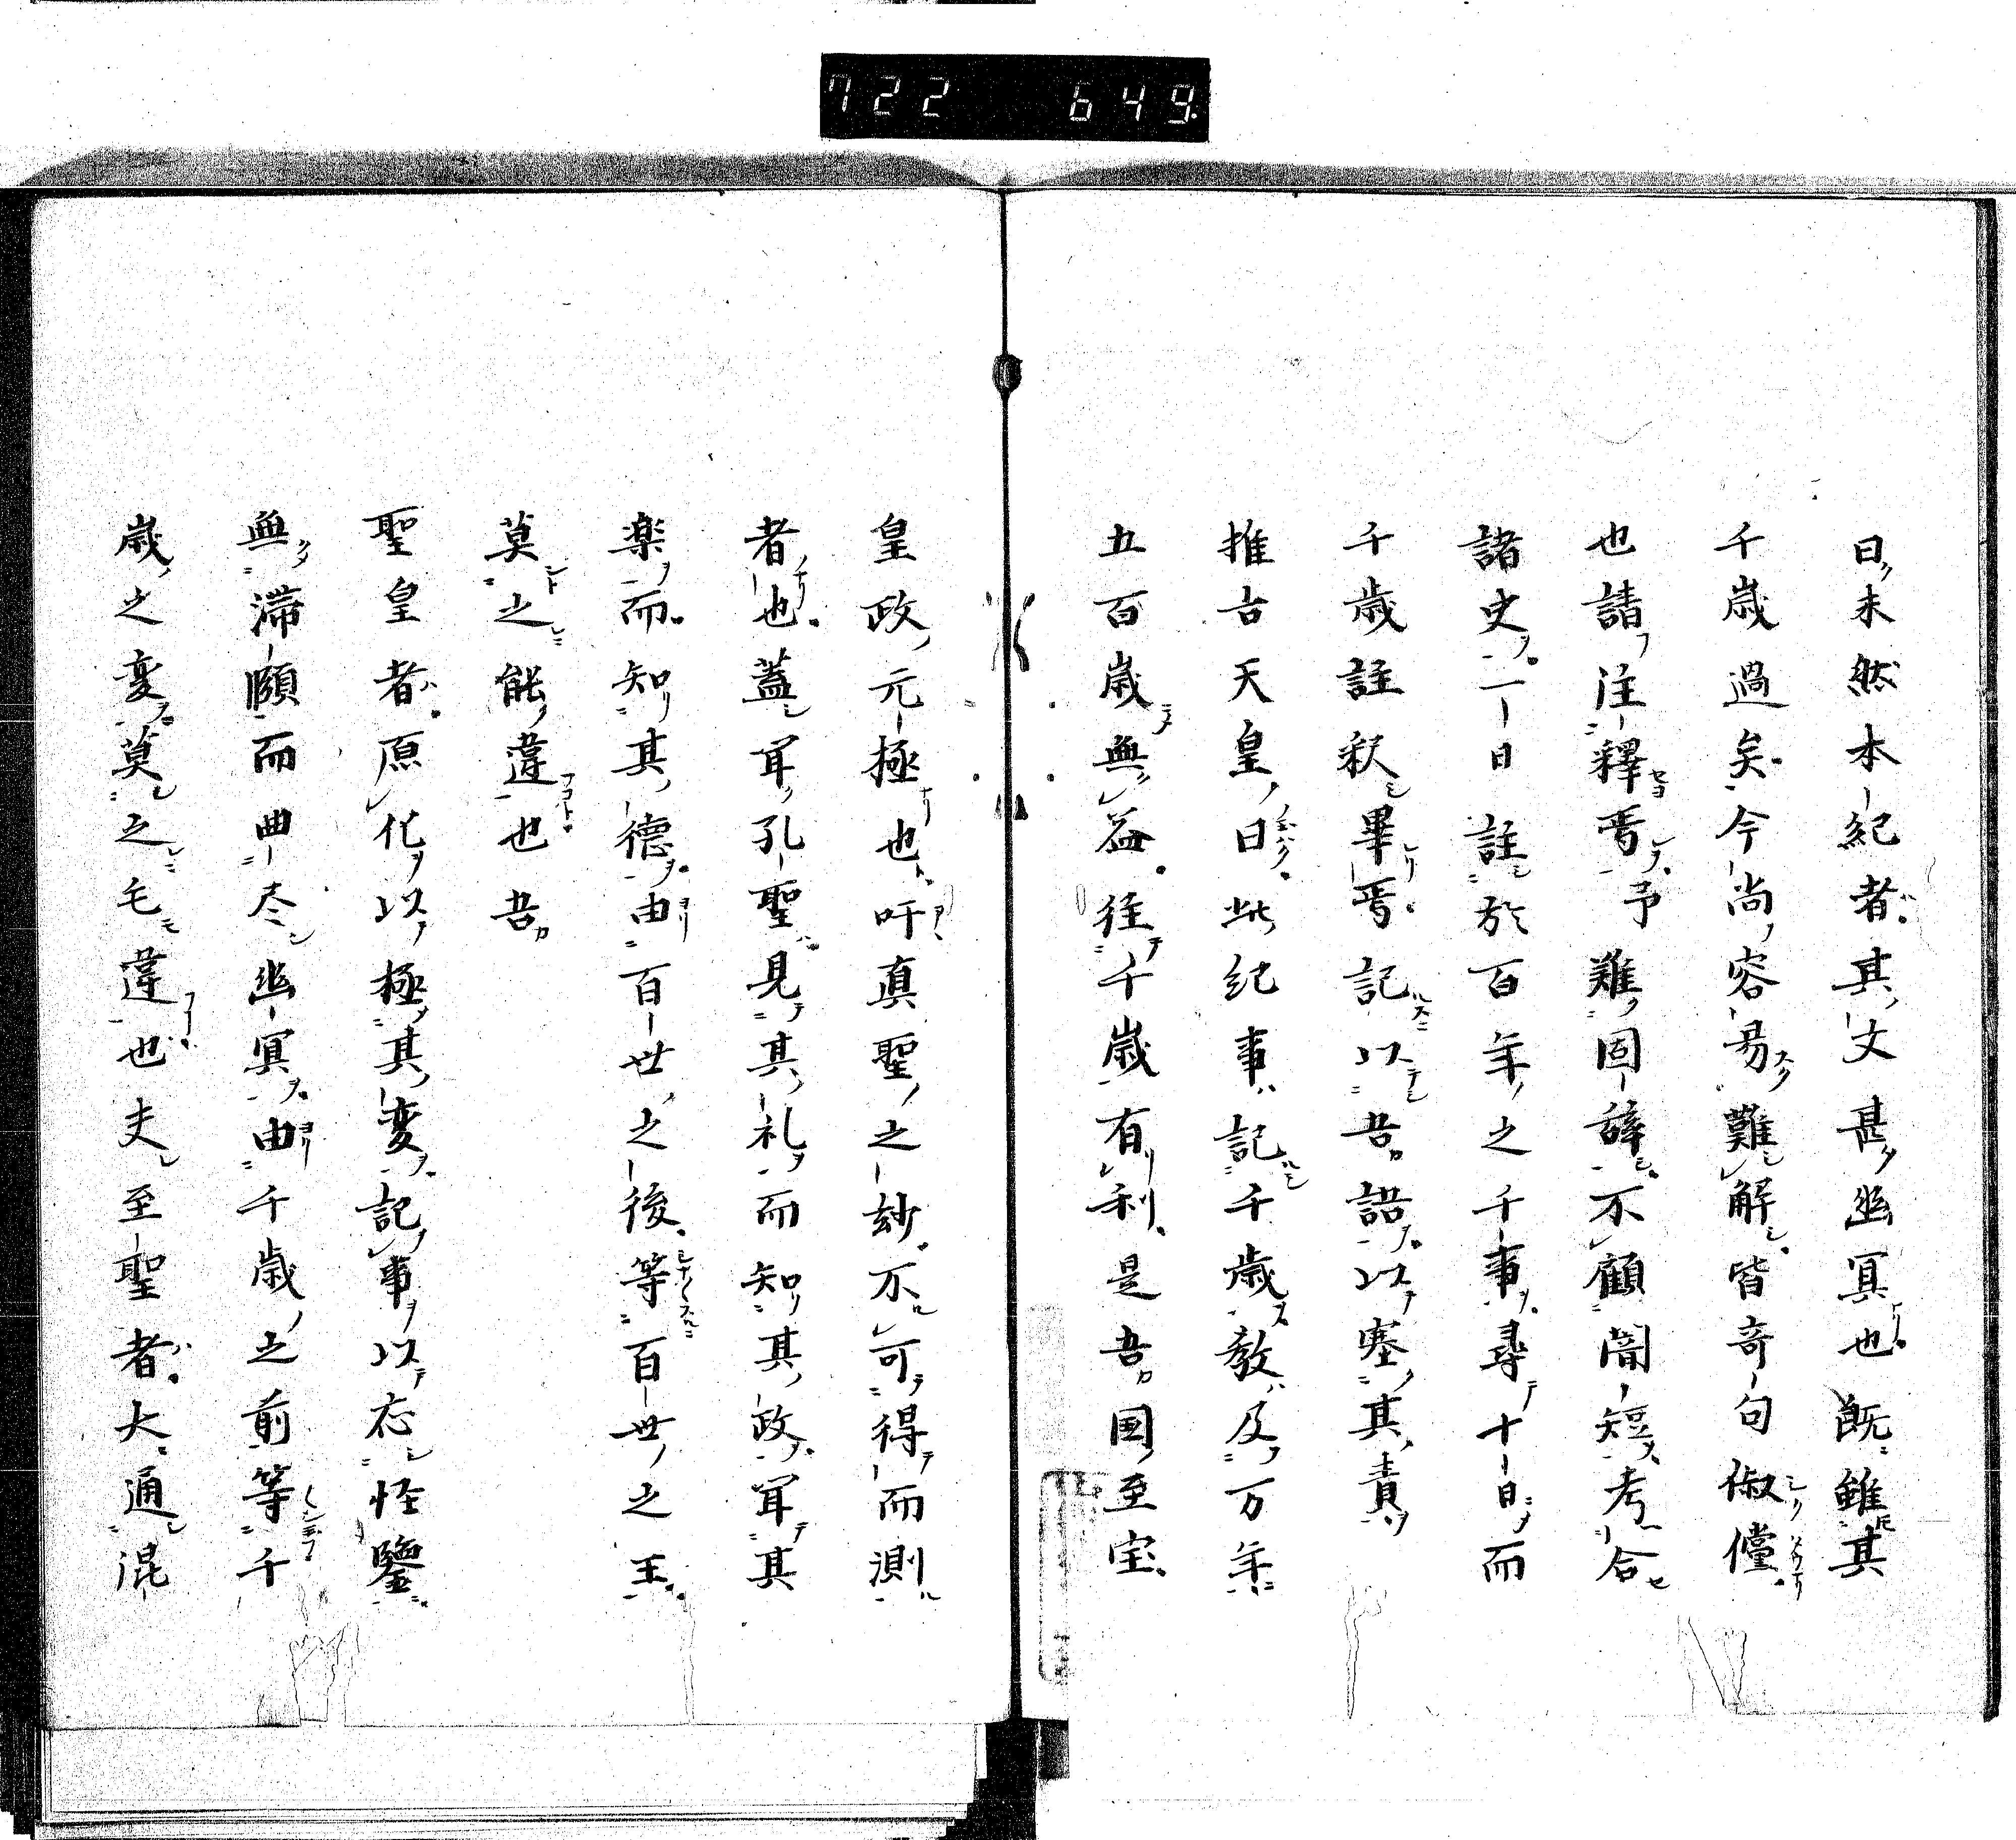 722 649
曰未然本紀者其文甚幽冥也既雖其
千歳過矣今尚容易難解皆奇句俶儻
也請注釋焉予難固辞不顧闇短考合
諸史一日註於百年之千事尋十日而
千歳註釈畢焉記以吾語以塞其責
推古天皇曰此紀事記千歳教及万年
五百歳無益往千歳有利是吾国至宝
皇政元極也吁真聖之玅不可得而測
者也蓋耳孔聖見其礼而知其政耳其
楽而知其徳由百世之後等百世之王
莫之能違也吾
聖皇者原化以極其変記事以応怪鑒
無滞頤而曲尽幽冥由千歳之前等千
歳之変莫之毛違也夫至聖者大通混